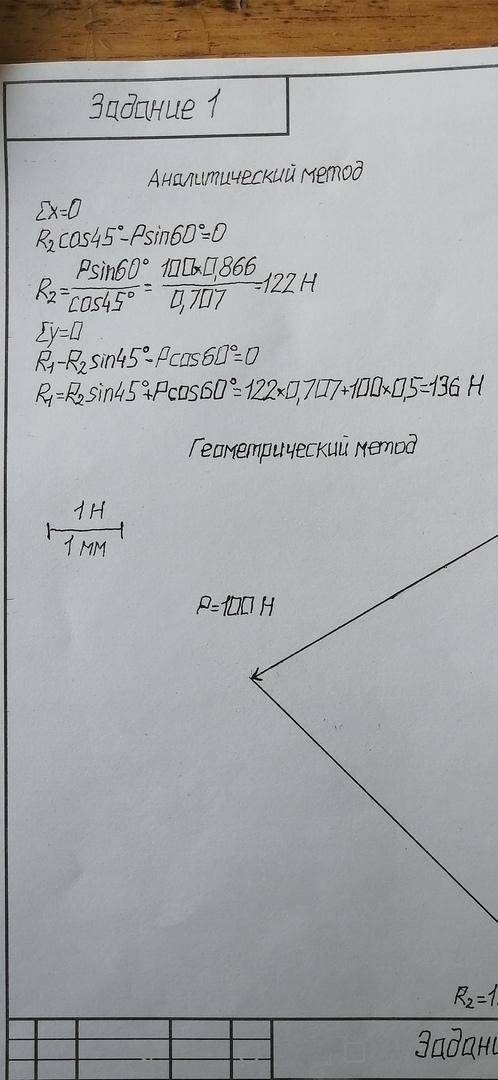 Задание 1
Аналитический метод
Σx=0
R₂cos45°-Psin60°=0
R₂=Psin60°/cos45°=100×0,866/0,707=122 Н
Σy=0
R₁-R₂sin45°-Pcos60°=0
R₁=R₂sin45°+Pcos60°=122×0,707+100×0,5=136 Н
Геометрический метод
1 Н
1 мм
P=100 Н
R₂=1
Задани